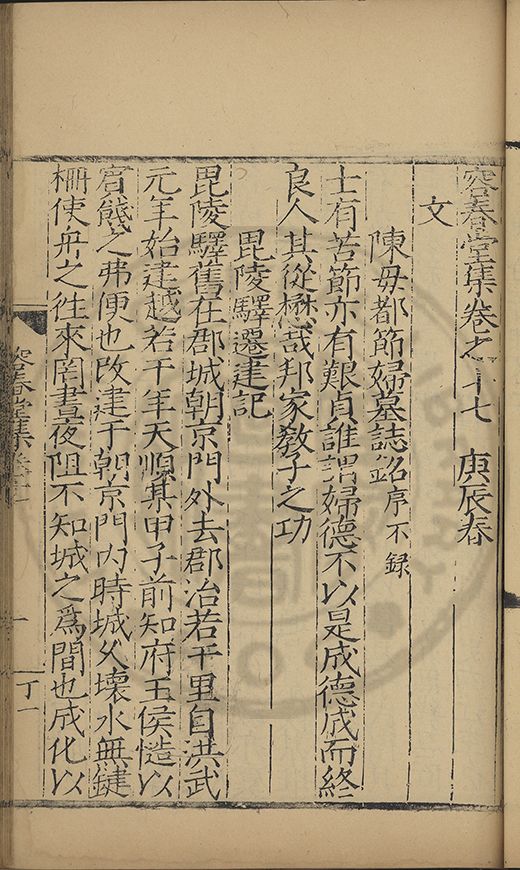 容春堂集卷之十七　庚辰春
文
陳母都節婦墓誌銘序不録
士有苦節亦有艱貞誰謂婦德不以是成德成而終
良人其從懋哉邦家教子之功
毘陵驛遷建記
毘陵驛舊在郡城朝京門外去郡治若干里自洪武
元年始建越若干年天順某甲子前知府王侯慥以
賓餞之弗便也改建于朝京門内時城久壞水無鍵
柵使舟之往來罔晝夜阻不知城之爲間也成化以
容春堂集
一
丁一